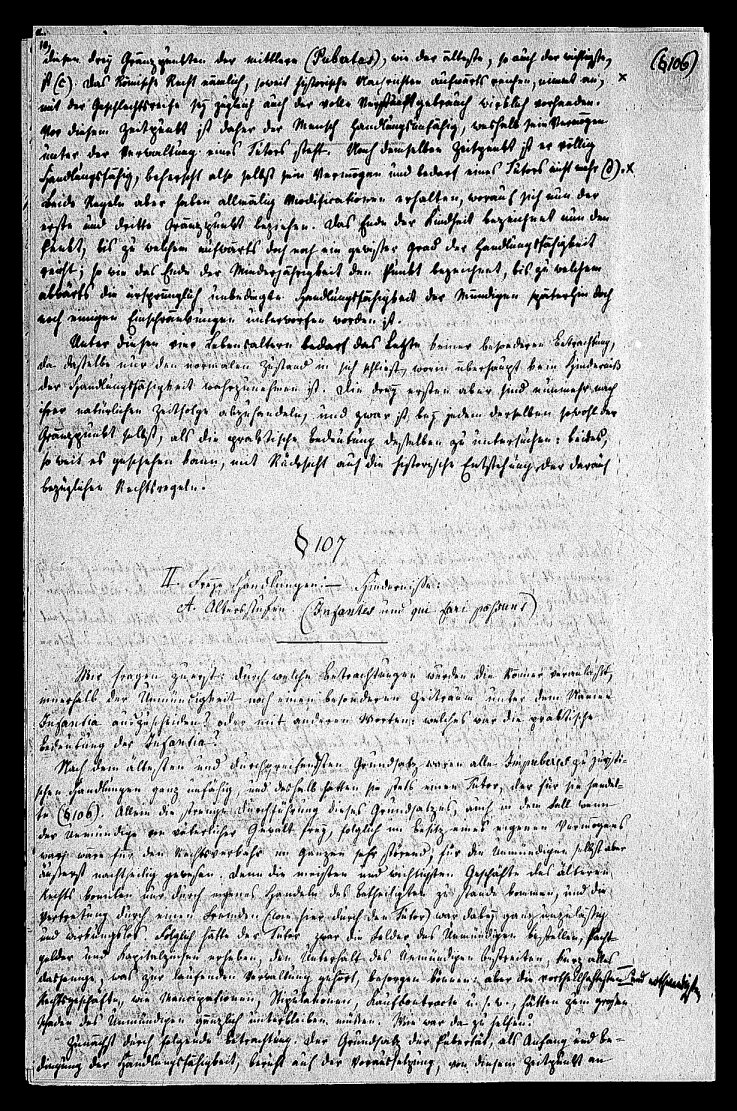 diesen drey Gränzpunkten der mittlere (Pubertas), wie der älteste, so auch der wichtigste, (§ 106)
Das Römische Recht nämlich, soweit historische Nachrichten aufwärts reichen, nimmt an,
mit der Geschlechtsreife sey zugleich auch der volle Vernunftgebrauch wirklich vorhanden.
Vor diesem Zeitpunkt ist daher der Mensch handlungsunfähig, weshalb sein Vermögen
unter der Verwaltung eines Tutors steht. Nach demselben Zeitpunkt ist er völlig
handlungsfähig, beherrscht also selbst sein Vermögen und bedarf eines Tutors nicht mehr (d).
Beide Regeln aber haben allmälig Modificationen erhalten, worauf sich nun der
erste und dritte Gränzpunkt beziehen. Das Ende der Kindheit bezeichnet nun den
Punkt, bis zu welchem aufwärts doch noch ein gewisser Grad der Handlungsfähigkeit
reicht; so wie das Ende der Minderjährigkeit den Punkt bezeichnet, bis zu welchem
abwärts die ursprünglich unbedingte Handlungsfähigkeit der Mündigen späterhin doch
noch einigen Einschränkungen unterworfen worden ist.
Unter diesen vier Lebensaltern bedarf das Letzte keiner besonderen Betrachtung,
da dasselbe nur den normalen Zustand in sich schließt, worin überhaupt kein Hinderniß
der Handlungsfähigkeit wahrzunehmen ist. Die drey ersten aber sind nunmehr nach
ihrer natürlichen Zeitfolge abzuhandeln, und zwar ist bey jedem derselben sowohl der
Gränzpunkt selbst, als die praktische Bedeutung desselben zu untersuchen: beides,
soweit es geschehen kann, mit Rücksicht auf die historische Entstehung der darauf
bezüglichen Rechtsregeln.
§ 107
II. Freye Handlungen. — Hindernisse.
A. Altersstufen (Infantes und qui fari possunt)
Wir fragen zuerst: durch welche Betrachtungen wurden die Römer veranlaßt,
innerhalb der Unmündigkeit noch einen besonderen Zeitraum unter dem Namen
Infantia auszuscheiden? oder mit anderen Worten: welches war die praktische
Bedeutung der Infantia?
Nach dem ältesten und durchgreifendsten Grundsatz waren alle Impuberes zu juristi-
schen Handlungen ganz unfähig, und deshalb hatten sie stets einen Tutor, der für sie handel-
te (§ 106). Allein die strenge Durchführung dieses Grundsatzes, auch in dem Fall wenn
der Unmündige von väterlicher Gewalt frey, folglich im Besitz eines eigenen Vermögens
war, wäre für den Rechtsverkehr im Ganzen sehr störend, für die Unmündigen selbst aber
äußerst nachtheilig gewesen. Denn die meisten und wichtigsten Geschäfte des älteren
Rechts konnten nur durch eigenes Handeln des Betheiligten zu Stande kommen, und die
Vertretung durch einen Fremden (wie hier durch den Tutor) war dabey ganz unzulässig
und wirkungslos. Folglich hätte der Tutor zwar die Felder des Unmündigen bestellen, Pacht-
gelder und Kapitalzinsen erheben, den Unterhalt des Unmündigen bestreiten, kurz alles
dasjenige, was zur laufenden Verwaltung gehört, besorgen können: aber die vortheilhaftesten und nothwendigsten
Rechtsgeschäfte, wie Mancipationen, Stipulationen, Kaufcontracte u. s. w., hätten zum großen
Schaden des Unmündigen gänzlich unterbleiben müssen. Wie war da zu helfen?
Zunächst durch folgende Betrachtung. Der Grundsatz der Pubertät, als Anfang und Be-
dingung der Handlungsfähigkeit, beruht auf der Voraussetzung, von diesem Zeitpunkt an